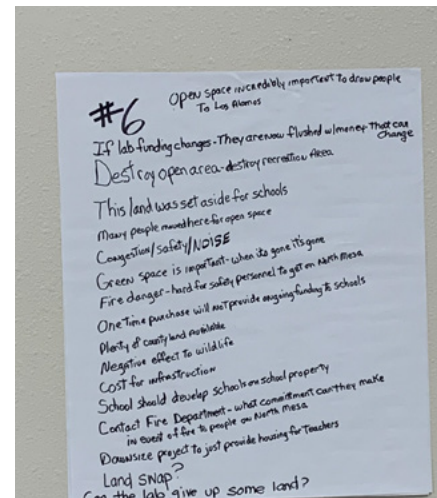 #6
Open space incredibly important to draw people
To Los Alamos
If lab funding changes - They are now flushed w/money that can
Change
Destroy open area - destroy recreation Area
This land was set aside for schools
Many people moved here for open space
Congestion/safety/NOISE
Green space is important - when its gone it's gone
Fire danger - hard for safety personnel to get on North Mesa
One time purchase will not provide ongoing funding to schools
Plenty of county land available
Negative effect to wildlife
Cost for infrastructure
School should develop schools on school property
Contact Fire Department - what commitment can they make
in event of fire to people on North Mesa
Downsize project to just provide housing for Teachers
Land swap?
Can the lab give up some land?